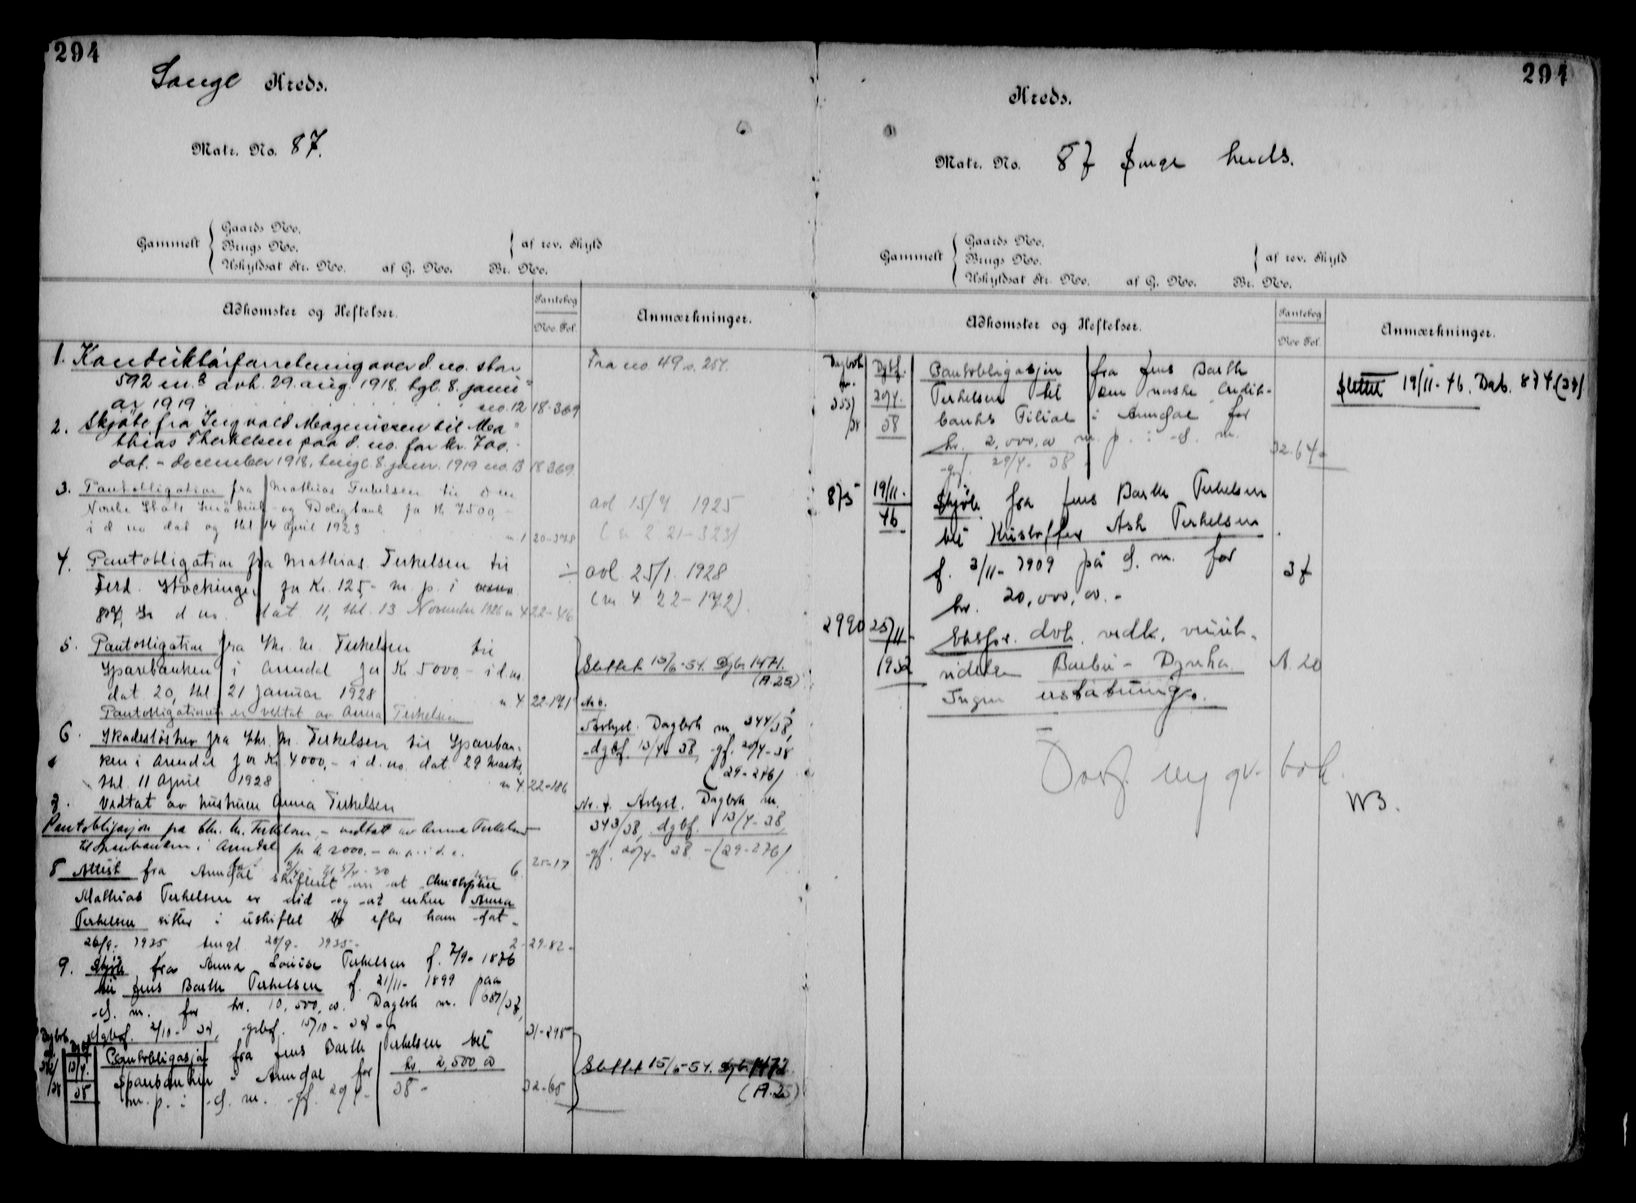 294
Songe Kreds.
Matr. No. 87.
Gammelt
Gaards No.
Brugs No.
Uskyldsat Nr. No. af G. No. Br. No.
af rev. Skyld
Adkomster og Heftelser.
Pantebog
No. Fol.
Anmærkninger.
1. Konduktørforretning over d. no. stor
592 m.² avh. 29. aug 1918. tgl. 8. janu-
ar 1919. no. 12 18-369
Fra no 49 s. 257.
2. Skjøte fra Ingvald Mogensen til Ma-
thias Therkelsen paa d. no. for kr. 700.-
dat. - december 1918, tingl. 8 janr. 1919 no. 13 18 369
3. Pantobligation fra Mathias Terkelsen til den
Norske Stats Småbruk- og Boligbank for Kr 7500,-
i d no dat og thl 14 april 1923 n 1 20-378
avl 15/4 1925
(n 2 21-323)
4. Pantobligation fra Mathias Terkelsen til
Ferd. Stockinger for Kr. 125,- m. p. i
d no. dat 11, thl. 13 November 1926 n 4 22-46
avl 25/1. 1928
(n 4 22-172).
5. Pantobligation fra Chr. M. Terkelsen til
Sparebanken i Arendal for Kr 5000,- i d. no
dat 20, thl 21 januar 1928 n 4 22-171
Pantobligationen er vedtat av Anna Terkelsen
Slettet 15/6-54. Dgb. 1471.
(A. 25)
6. Skadesløsbrev fra Chr. M. Terkelsen til Spareban-
ken i Arendal for Kr 4000,- i d. no. dat 29 Marts,
thl. 11 April 1928 n 4 22-186
Vedtat av hustruen Anna Terkelsen
No 6.
Avlyst. Dagbok nr 344/38,
dgbf. 13/4-38, gf. 20/4-38
(29-276)
7. Pantobligasjon fra Chr. M. Terkelsen, - vedtatt av Anna Terkelsen
til Sparebanken i Arendal for kr 2000.- m. p. i d. n. 6. 25-17
Nr. 7. Avlyst. Dagbok nr.
343/38, dgbf. 13/4-38,
gf. 20/4-38. - (29-276)
8 Attest fra Arendal skifterett om at Christopher
Mathias Terkelsen er död og at enken Anna
Terkelsen sitter i uskiftet bo efter ham dat
26/9. 1935 tingl. 28/9. 1935 2- 29-82-
9. Skjöte fra Anna Louise Terkelsen f. 7/9- 1876
til Jens Barth Terkelsen f. 21/11- 1899 paa
d. m. for kr. 10,500,00. Dagbok nr. 687/37,
dgbf. 2/10-37, grbf. 15/10-37 31-295
Dagbok
Dgbf.
13/4.
38
Pantobligasjon fra Jens Barth Terkelsen til
Sparebanken i Arendal for kr. 2,500,00
m. p. i d. m. gf. 29/4- 38- 32-65
Slettet 15/6-54. Dgb. 1472
(A. 25)
294
Kreds.
Matr. No. 87 Songe kreds.
Gammelt
Gaards No.
Brugs No.
Uskyldsat Nr. No. af G. No. Br. No.
af rev. Skyld
Adkomster og Heftelser.
Pantebog
No. Fol.
Anmærkninger.
Dagbok
nr.
353/38
Dgbf.
20/4.
38
Pantobligasjon fra Jens Barth
Terkelsen til Den norske Credit-
banks Filial i Arendal for
kr. 2,000,00 m. p. i d. m.
gf. 29/4- 38 32-64-
Slettet 19/11-46. Dab. 874 (34)
875 19/11.
46
Skjöte fra Jens Barth Terkelsen
til Kristoffer Ask Terkelsen
f. 3/11- 1909 på d. m. for
kr. 20,000,00.- 37
2990 25/11-
1952
Ekspr. dok. vedk.
videre Barbu - Dyrha
Ingen erstatning. A. 20
Overf. ny gr. bok
WB.